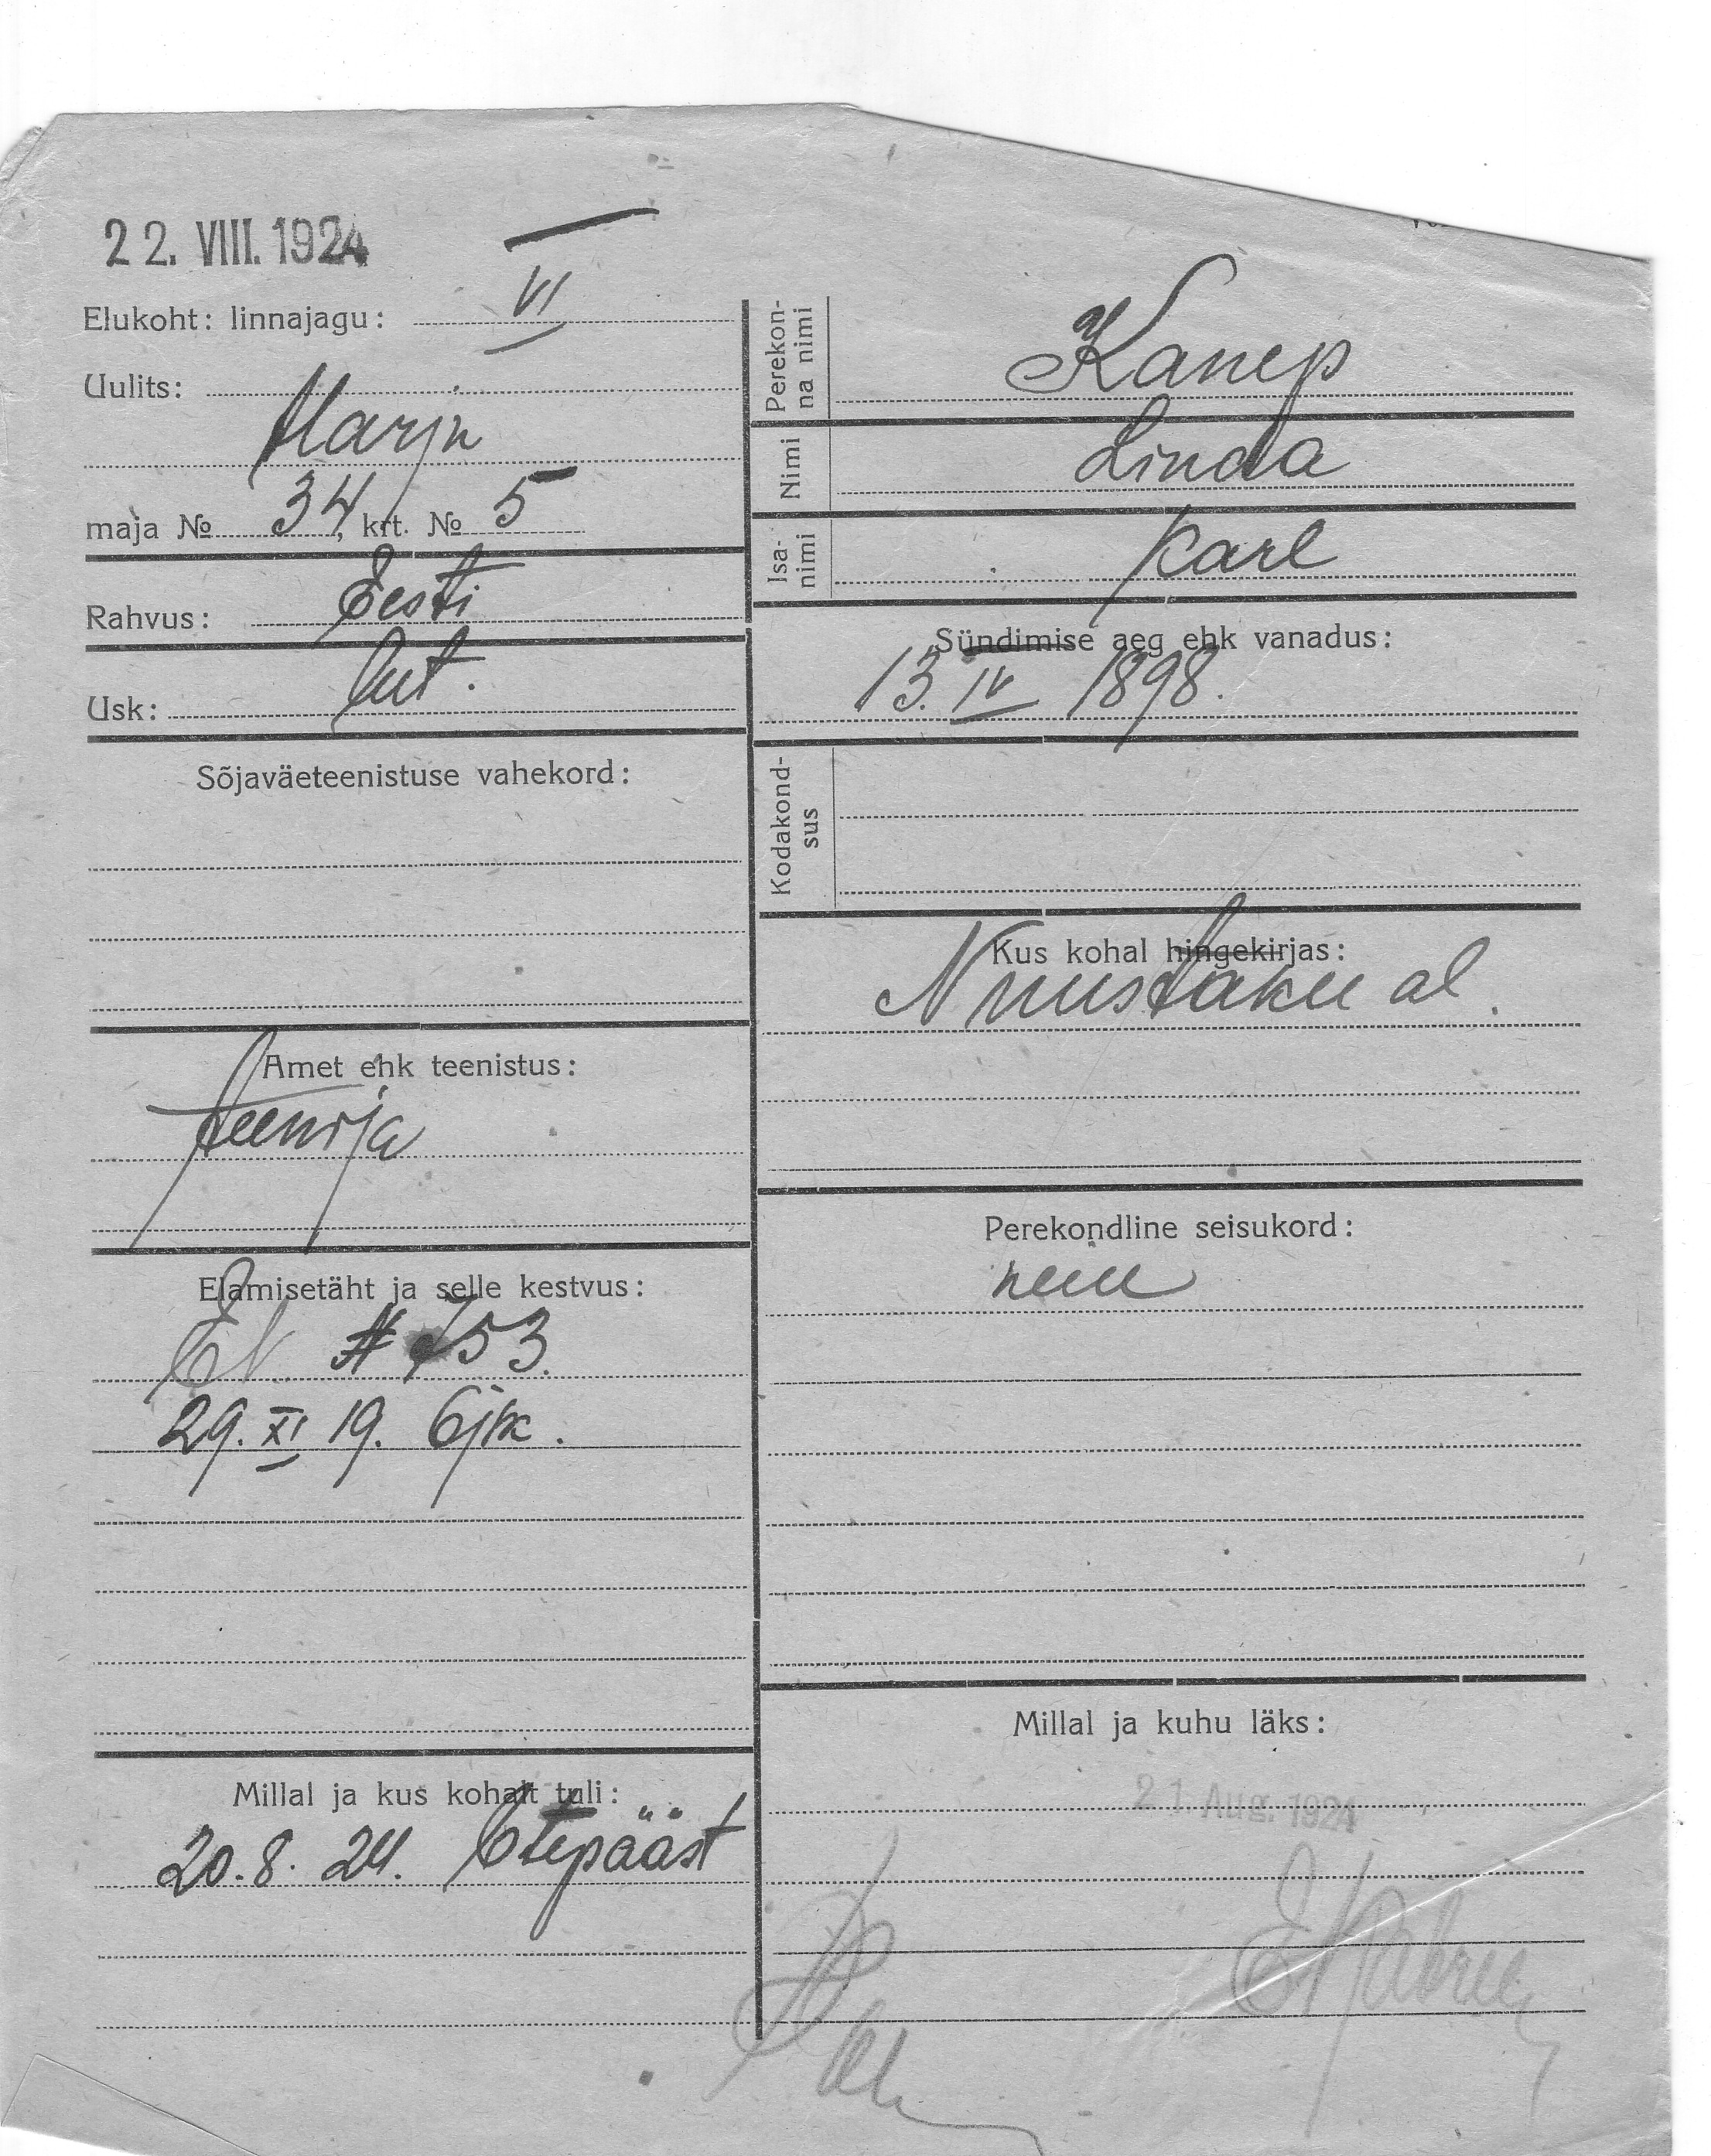 22. VIII. 1924
Elukoht: linnajagu: VI
Uulits:
Harju
maja № 34, krt. № 5
Rahvus: Eesti
Usk: Lut.
Sõjaväeteenistuse vahekord:
Amet ehk teenistus:
teenija
Elamisetäht ja selle kestvus:
№ 753.
29. XI 19. 6jsk.
Millal ja kus kohalt tuli:
20.8. 24. Otepääst
Perekonna nimi Kanep
Nimi Linda
Isanimi Karl
Sündimise aeg ehk vanadus:
13. IV 1898.
Kodakondsus
Kus kohal hingekirjas:
Nuustaku al.
Perekondline seisukord:
neiu
Millal ja kuhu läks:
21. Aug. 1924